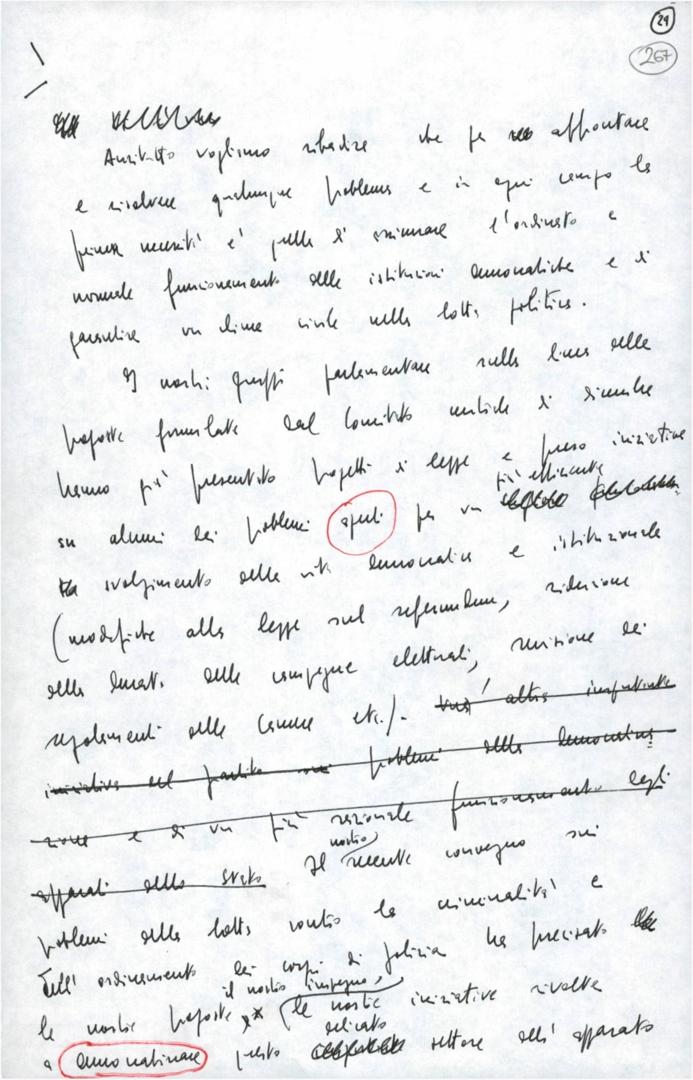 29
267
Anzitutto vogliamo ribadire che per affrontare
e risolvere qualunque problema e in ogni campo la
prima necessità è quella di assicurare l'ordinato e
normale funzionamento delle istituzioni democratiche e di
garantire un clima civile nella lotta politica.
I nostri gruppi parlamentari sulla linea delle
proposte formulate dal Comitato centrale di dicembre
hanno già presentato progetti di legge e preso iniziative
su alcuni dei problemi aperti per un più efficiente
svolgimento della vita democratica e istituzionale
(modifiche alla legge sul referendum, riduzione
della durata delle campagne elettorali, revisione dei
regolamenti delle Camere etc.). altra importante
iniziativa del partito problemi della
zione e di un più razionale funzionamento degli
apparati dello Stato Il nostro recente convegno sui
problemi della lotta contro la criminalità e
dell'ordinamento dei corpi di polizia ha precisato
le nostre proposte il nostro impegno, le nostre iniziative rivolte
a democratizzare questo delicato settore dell'apparato